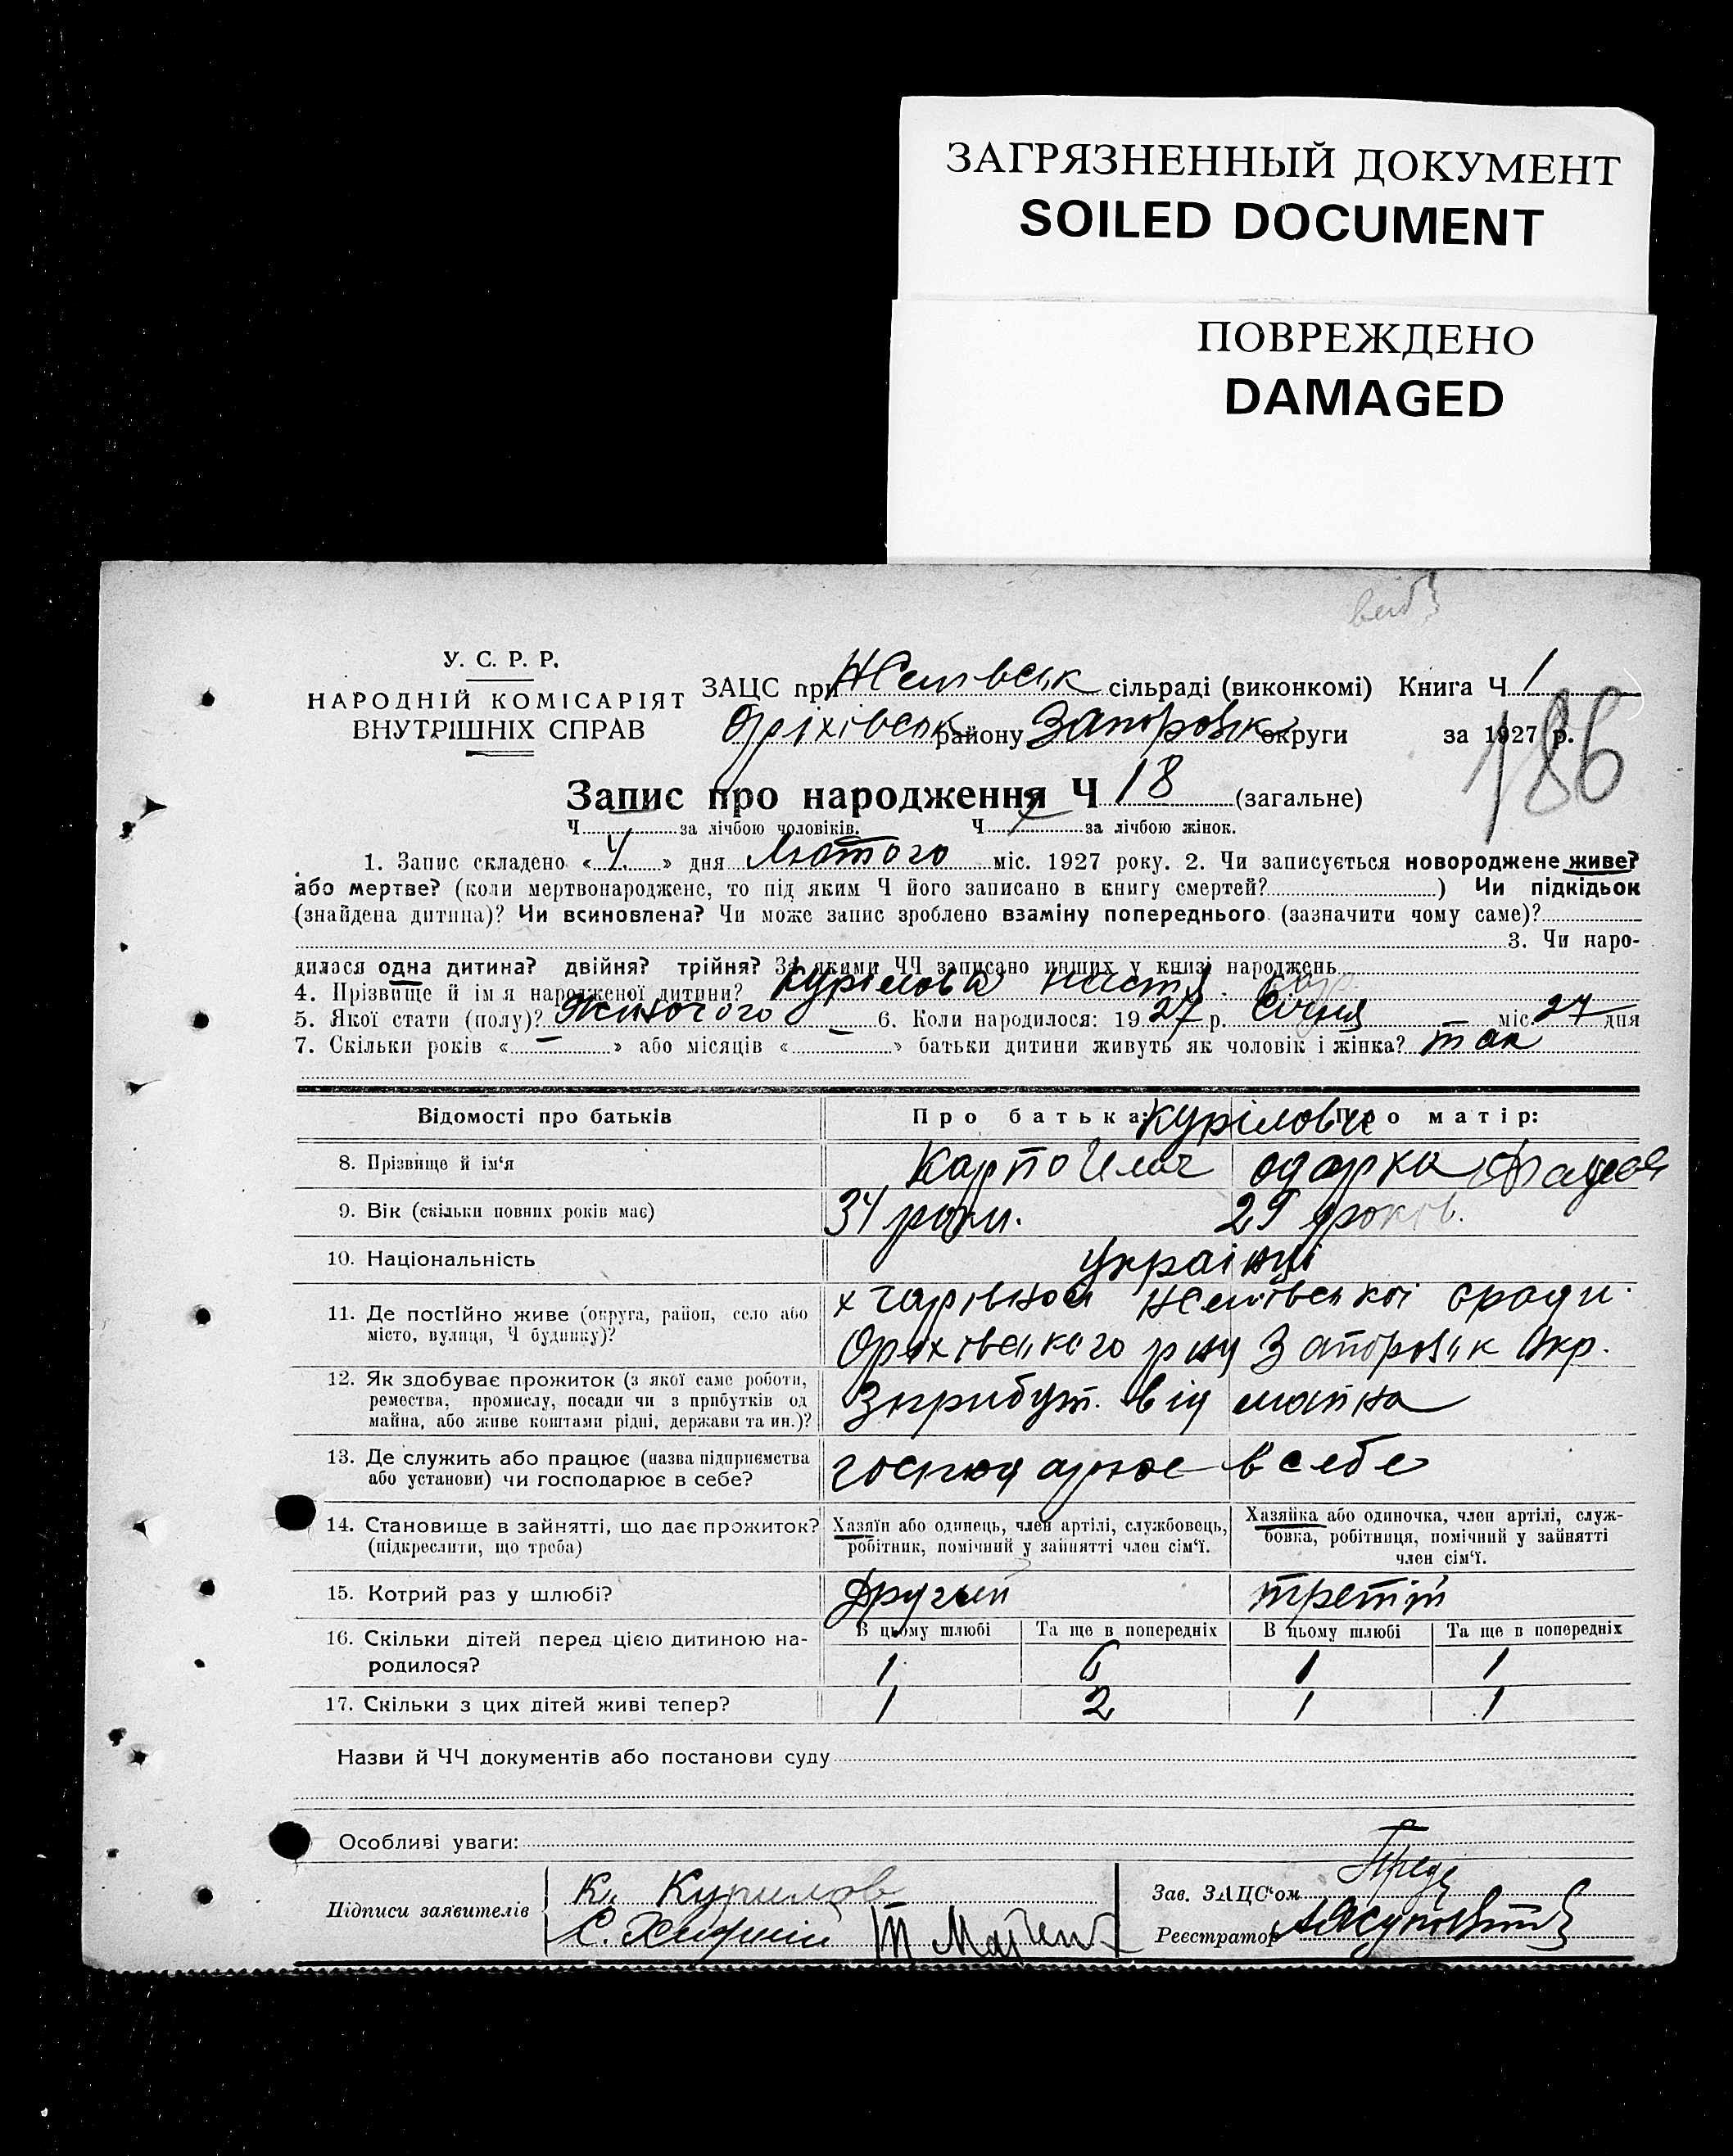 ЗАГРЯЗНЕННЫЙ ДОКУМЕНТ
SOILED DOCUMENT
ПОВРЕЖДЕНО
DAMAGED
У. С. Р. Р.
НАРОДНІЙ КОМІСАРІЯТ
ВНУТРІШНІХ СПРАВ
ЗАЦС при сільраді (виконкомі) Книга Ч 1
Оріхівськ району Запорізьк округи за 1927 р.
186
Запис про народження Ч 18 (загальне)
Ч за лічбою чоловіків. Ч за лічбою жінок.
1. Запис складено «4» дня Лютого міс. 1927 року. 2. Чи записується новороджене живе?
або мертве? (коли мертвонароджене, то під яким Ч його записано в книгу смертей? ) Чи підкідьок
(знайдена дитина)? Чи всиновлена? Чи може запис зроблено взаміну попереднього (зазначити чому саме)?
3. Чи наро-
дилася одна дитина? двійня? трійня? За якими ЧЧ записано инших у книзі народжень
4. Прізвище й ім'я народженої дитини? Курілова Настя
5. Якої стати (полу)? Жиночого 6. Коли народилося: 1927 р. Січня міс. 27 дня
7. Скільки років « — » або місяців « — » батьки дитини живуть як чоловік і жінка? так
Відомості про батьків Про батька: Про матір:
Курілови
8. Прізвище й ім'я Карпо Илич Одарка
9. Вік (скільки повних років має) 34 роки. 29 років.
10. Національність Українці
11. Де постійно живе (округа, район, село або
місто, вулиця, Ч будинку)?
Оріхівського р-ну Запорізьк Окр.
12. Як здобуває прожиток (з якої саме роботи,
ремества, промислу, посади чи з прибутків од
майна, або живе коштами рідні, держави та ин.)?
Зприбут. від майна
13. Де служить або працює (назва підприємства
або установи) чи господарює в себе?
господарює в себе
14. Становище в зайнятті, що дає прожиток?
(підкреслити, що треба)
Хазяїн або одинець, член артілі, службовець,
робітник, помічний у зайнятті член сім'ї.
Хазяйка або одиночка, член артілі, служ-
бовка, робітниця, помічний у зайнятті
член сім'ї.
15. Котрий раз у шлюбі? Другий третій
16. Скільки дітей перед цією дитиною на-
родилося?
В цьому шлюбі Та ще в попередніх В цьому шлюбі Та ще в попередніх
1 6 1 1
17. Скільки з цих дітей живі тепер? 1 2 1 1
Назви й ЧЧ документів або постанови суду
Особливі уваги:
Підписи заявителів
К. Курилов
Зав. ЗАЦС'ом
Реєстратор